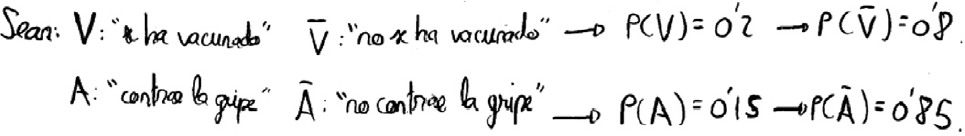 Sean: V: "se ha vacunado" V̄: "no se ha vacunado" → P(V) = 0'2 → P(V̄) = 0'8.
A: "contrae la gripe" Ā: "no contrae la gripe" → P(A) = 0'15 → P(Ā) = 0'85.